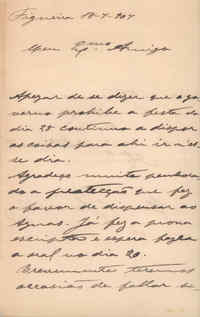 Figueira 18-7-907
Meu Exmo Amigo
Apezar de se dizer que o go
verno prohibe a festa do
dia 28 continuo a dispor
as coisas para ahi ir n'es
se dia.
Agradeço muito penhora
do a protecção que fez
a favor de dispensar as
Agras. Já fez a prova
escripta e espera fazer
a oral no dia 20.
Brevemente teremos
occasião de fallar de